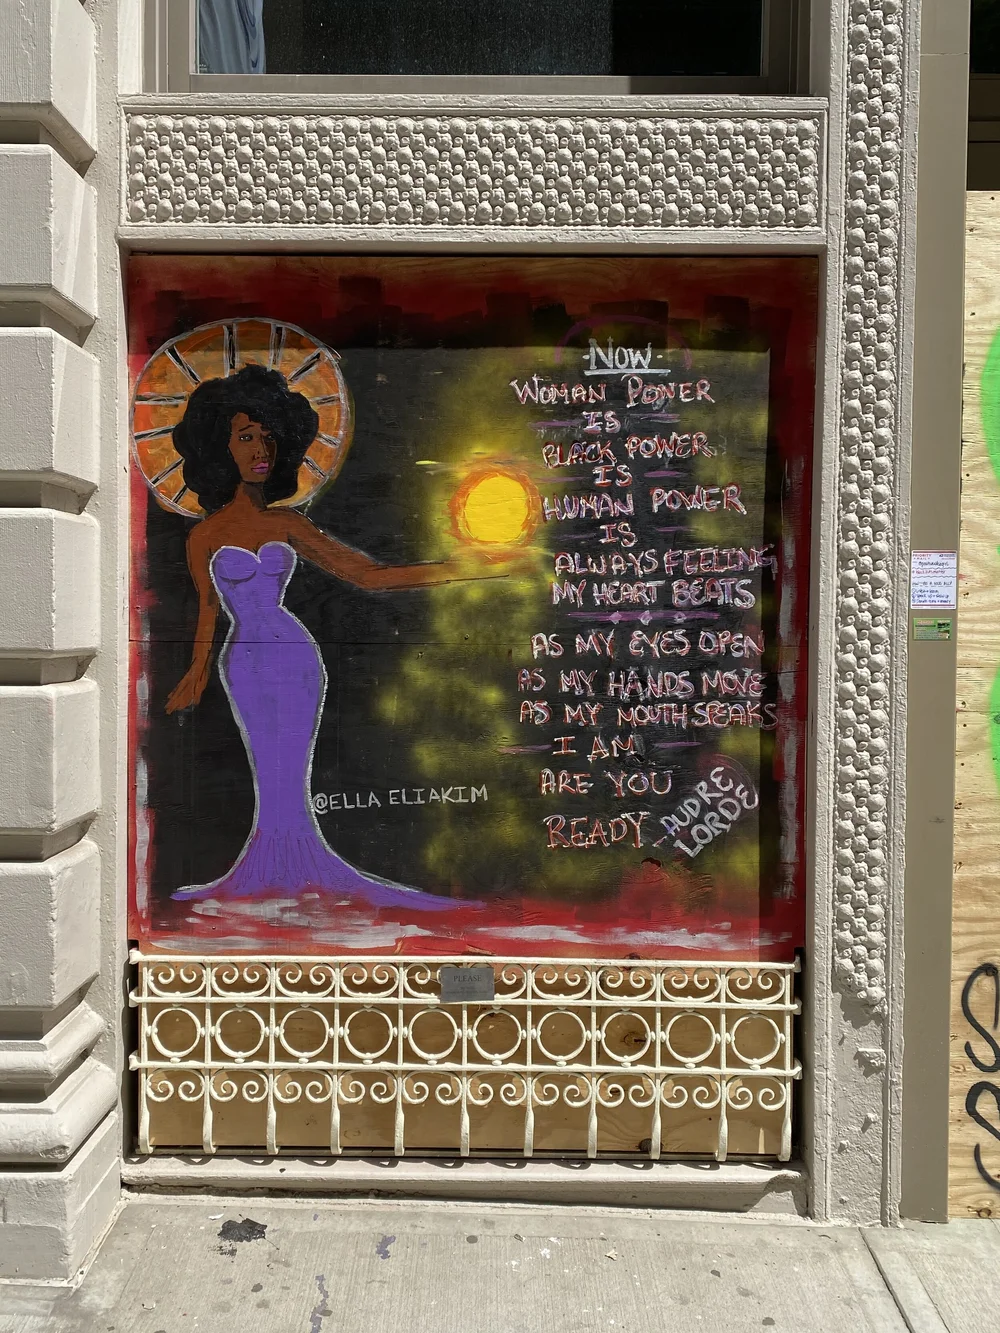 ·NOW·
WOMAN POWER
IS
BLACK POWER
IS
HUMAN POWER
IS
ALWAYS FEELING
MY HEART BEATS
AS MY EYES OPEN
AS MY HANDS MOVE
AS MY MOUTH SPEAKS
I AM
ARE YOU
READY
-AUDRE
LORDE
@ELLA ELIAKIM
PLEASE
PRIORITY